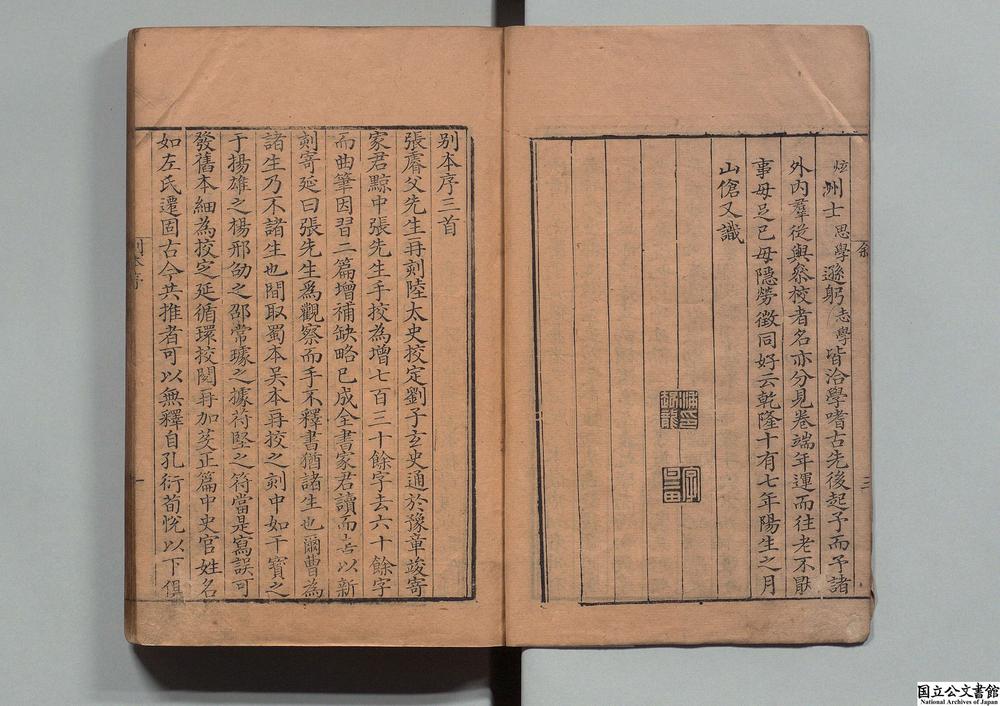 炫洲士思學遜躬志學皆洽學嗜古先後起予而予諸
外內羣從與叅校者名亦分見卷端年運而往老不厭
事毋足已毋隱勞徵同好云乾隆十有七年陽生之月
山傖又識
三
别本序三首
張睿父先生再刻陸太史挍定劉子玄史通於豫章竣寄
家君黔中張先生手挍為增七百三十餘字去六十餘字
而曲筆因習二篇增補缺略已成全書家君讀而喜以新
刻寄延曰張先生爲觀察而手不釋書猶諸生也爾曹為
諸生乃不諸生也間取蜀本吳本再挍之刻中如干寶之
于揚雄之楊邢劭之邵常璩之據苻堅之符當是寫誤可
發舊本細為挍定延循環挍閱再加芟正篇中史官姓名
如左氏遷固古今共推者可以無釋自孔衍荀悅以下俱
别本序
一
国立公文書館
National Archives of Japan